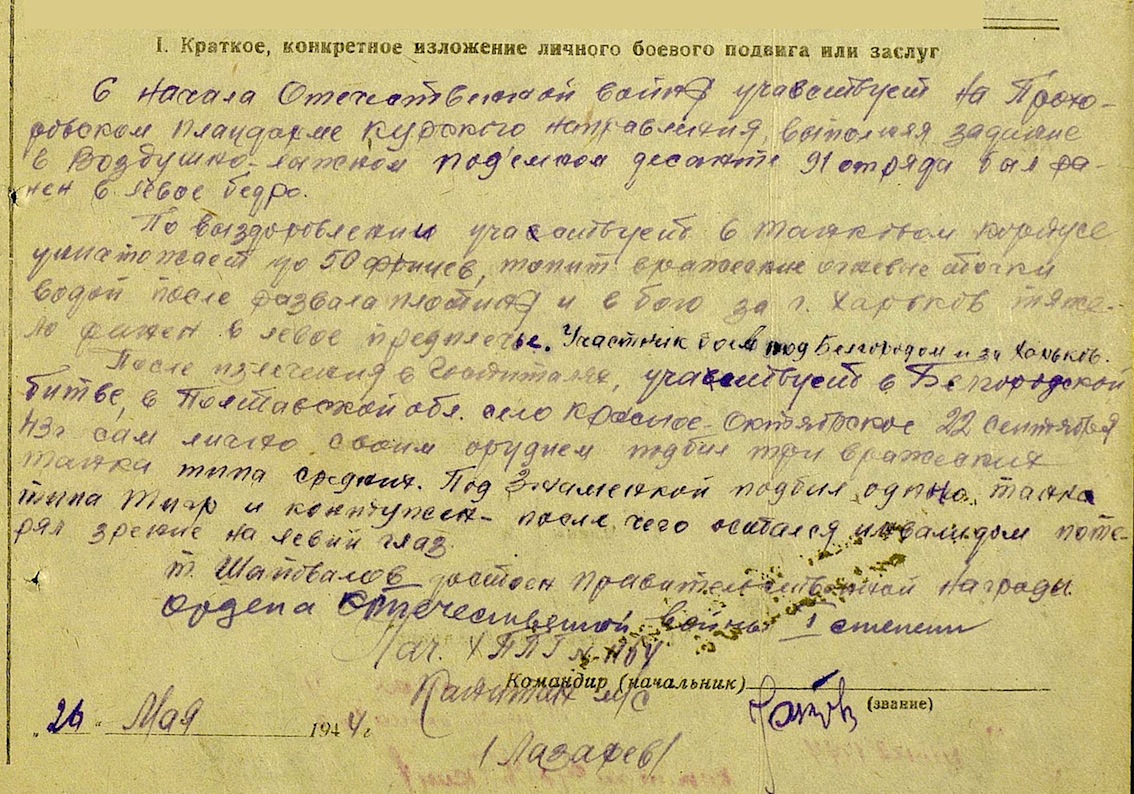 I. Краткое, конкретное изложение личного боевого подвига или заслуг
С начала Отечественной войны учавствует на Прохо-
ровском плацдарме Курского направления, выполняя задание
в Воздушно-лыжном под'емном десанте 91 отряда был ра-
нен в левое бедро.
По выздоровлении учавствует в танковом корпусе
уничтожает до 50 фрицев, топит вражеские огневые точки
водой после развала плотины и в бою за г. Харьков тяже-
ло ранен в левое предплечье. Участник боев под Белгородом и за Харьков.
После излечения в Госпиталях, учавствует в Белгородской
битве, в Полтавской обл. село Красное-Октябрское 22 сентября
43г сам лично своим орудием подбил три вражеских
танка типа средних. Под Знаменкой подбил одного танка
типа Тигр и контужен- после чего остался инвалидом поте-
рял зрение на левий глаз.
т. Шаповалов достоен правительственной награды
ордена Отечественной войны I степени
Нач. ХППГ №
Командир (начальник)
Капитан м/с
(звание)
"26" Мая 1944 г
/Лазарев/